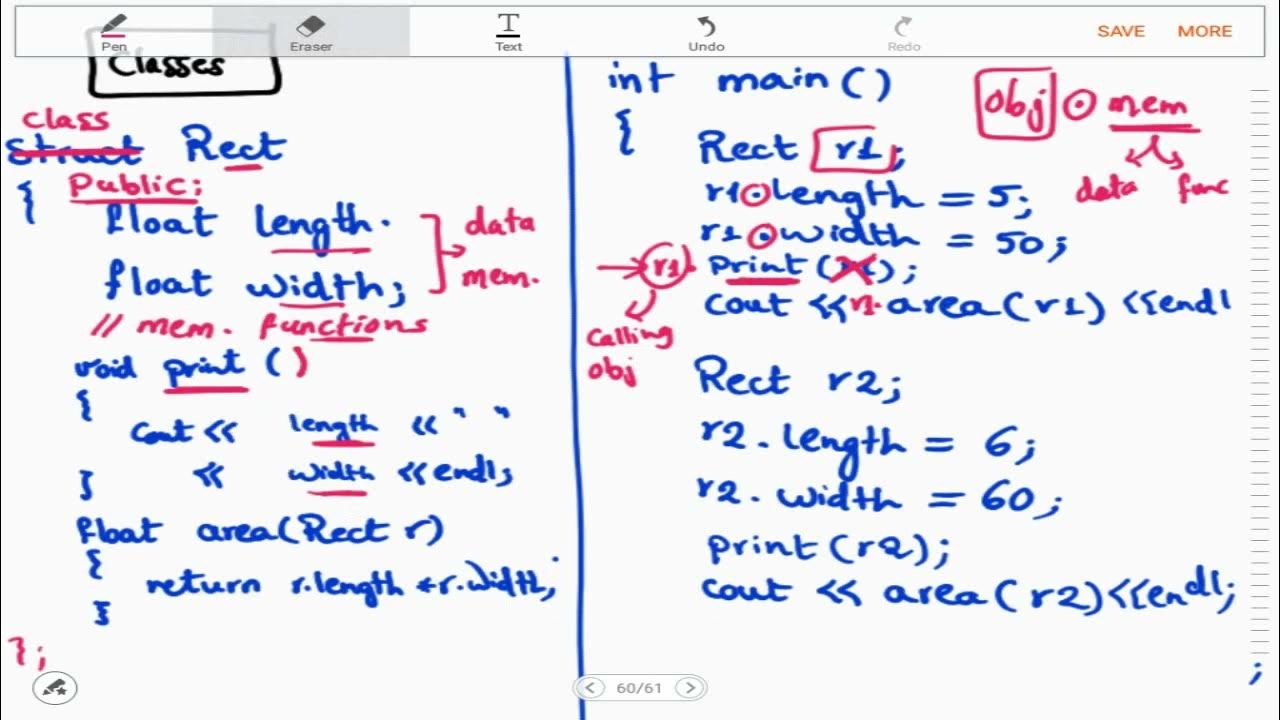 Pen
Eraser
Text
Undo
Redo
SAVE
MORE
Classes
class
struct Rect
{ Public:
float length.
float width;
data
mem.
// mem. functions
void print ()
{
cout << length << " "
<< width <<endl;
}
float area(Rect r)
{
return r.length * r.width;
}
};
int main()
{
Rect r1;
obj . mem
data func
r1.length = 5;
r1.width = 50;
r1. print ( );
calling
obj
cout << r1. area(r1) <<endl
Rect r2;
r2.length = 6;
r2.width = 60;
print(r2);
cout << area(r2)<<endl;
;
60/61